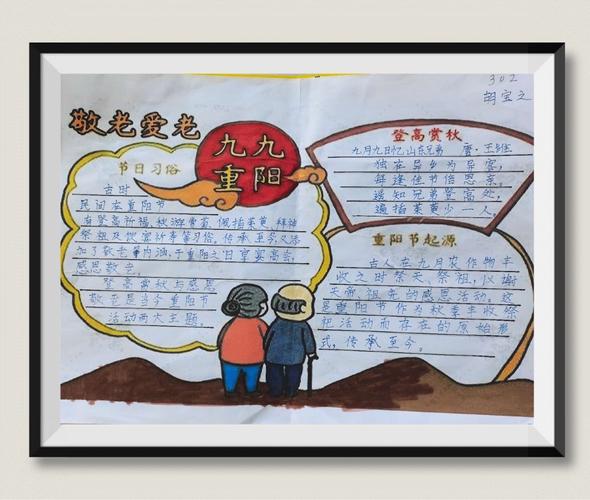 302
胡宝之
敬老爱老
九九
重阳
节日习俗
古时
民间在重阳节
有登高祈福、秋游赏菊、佩插茱萸、拜神
祭祖及饮宴祈寿等习俗。传承至今，又添
加了敬老等内涵，于重阳之日享宴高会，
感恩敬老。
登高赏秋与感恩
敬老是当今重阳节
活动两大主题。
登高赏秋
九月九日忆山东兄弟 唐·王维
独在异乡为异客，
每逢佳节倍思亲。
遥知兄弟登高处，
遍插茱萸少一人
重阳节起源
古人在九月农作物丰
收之时祭天、祭祖，以谢
天帝、祖先的恩德活动。这
是重阳节作为秋季丰收祭
祀活动而存在的原始形
式，传承至今。